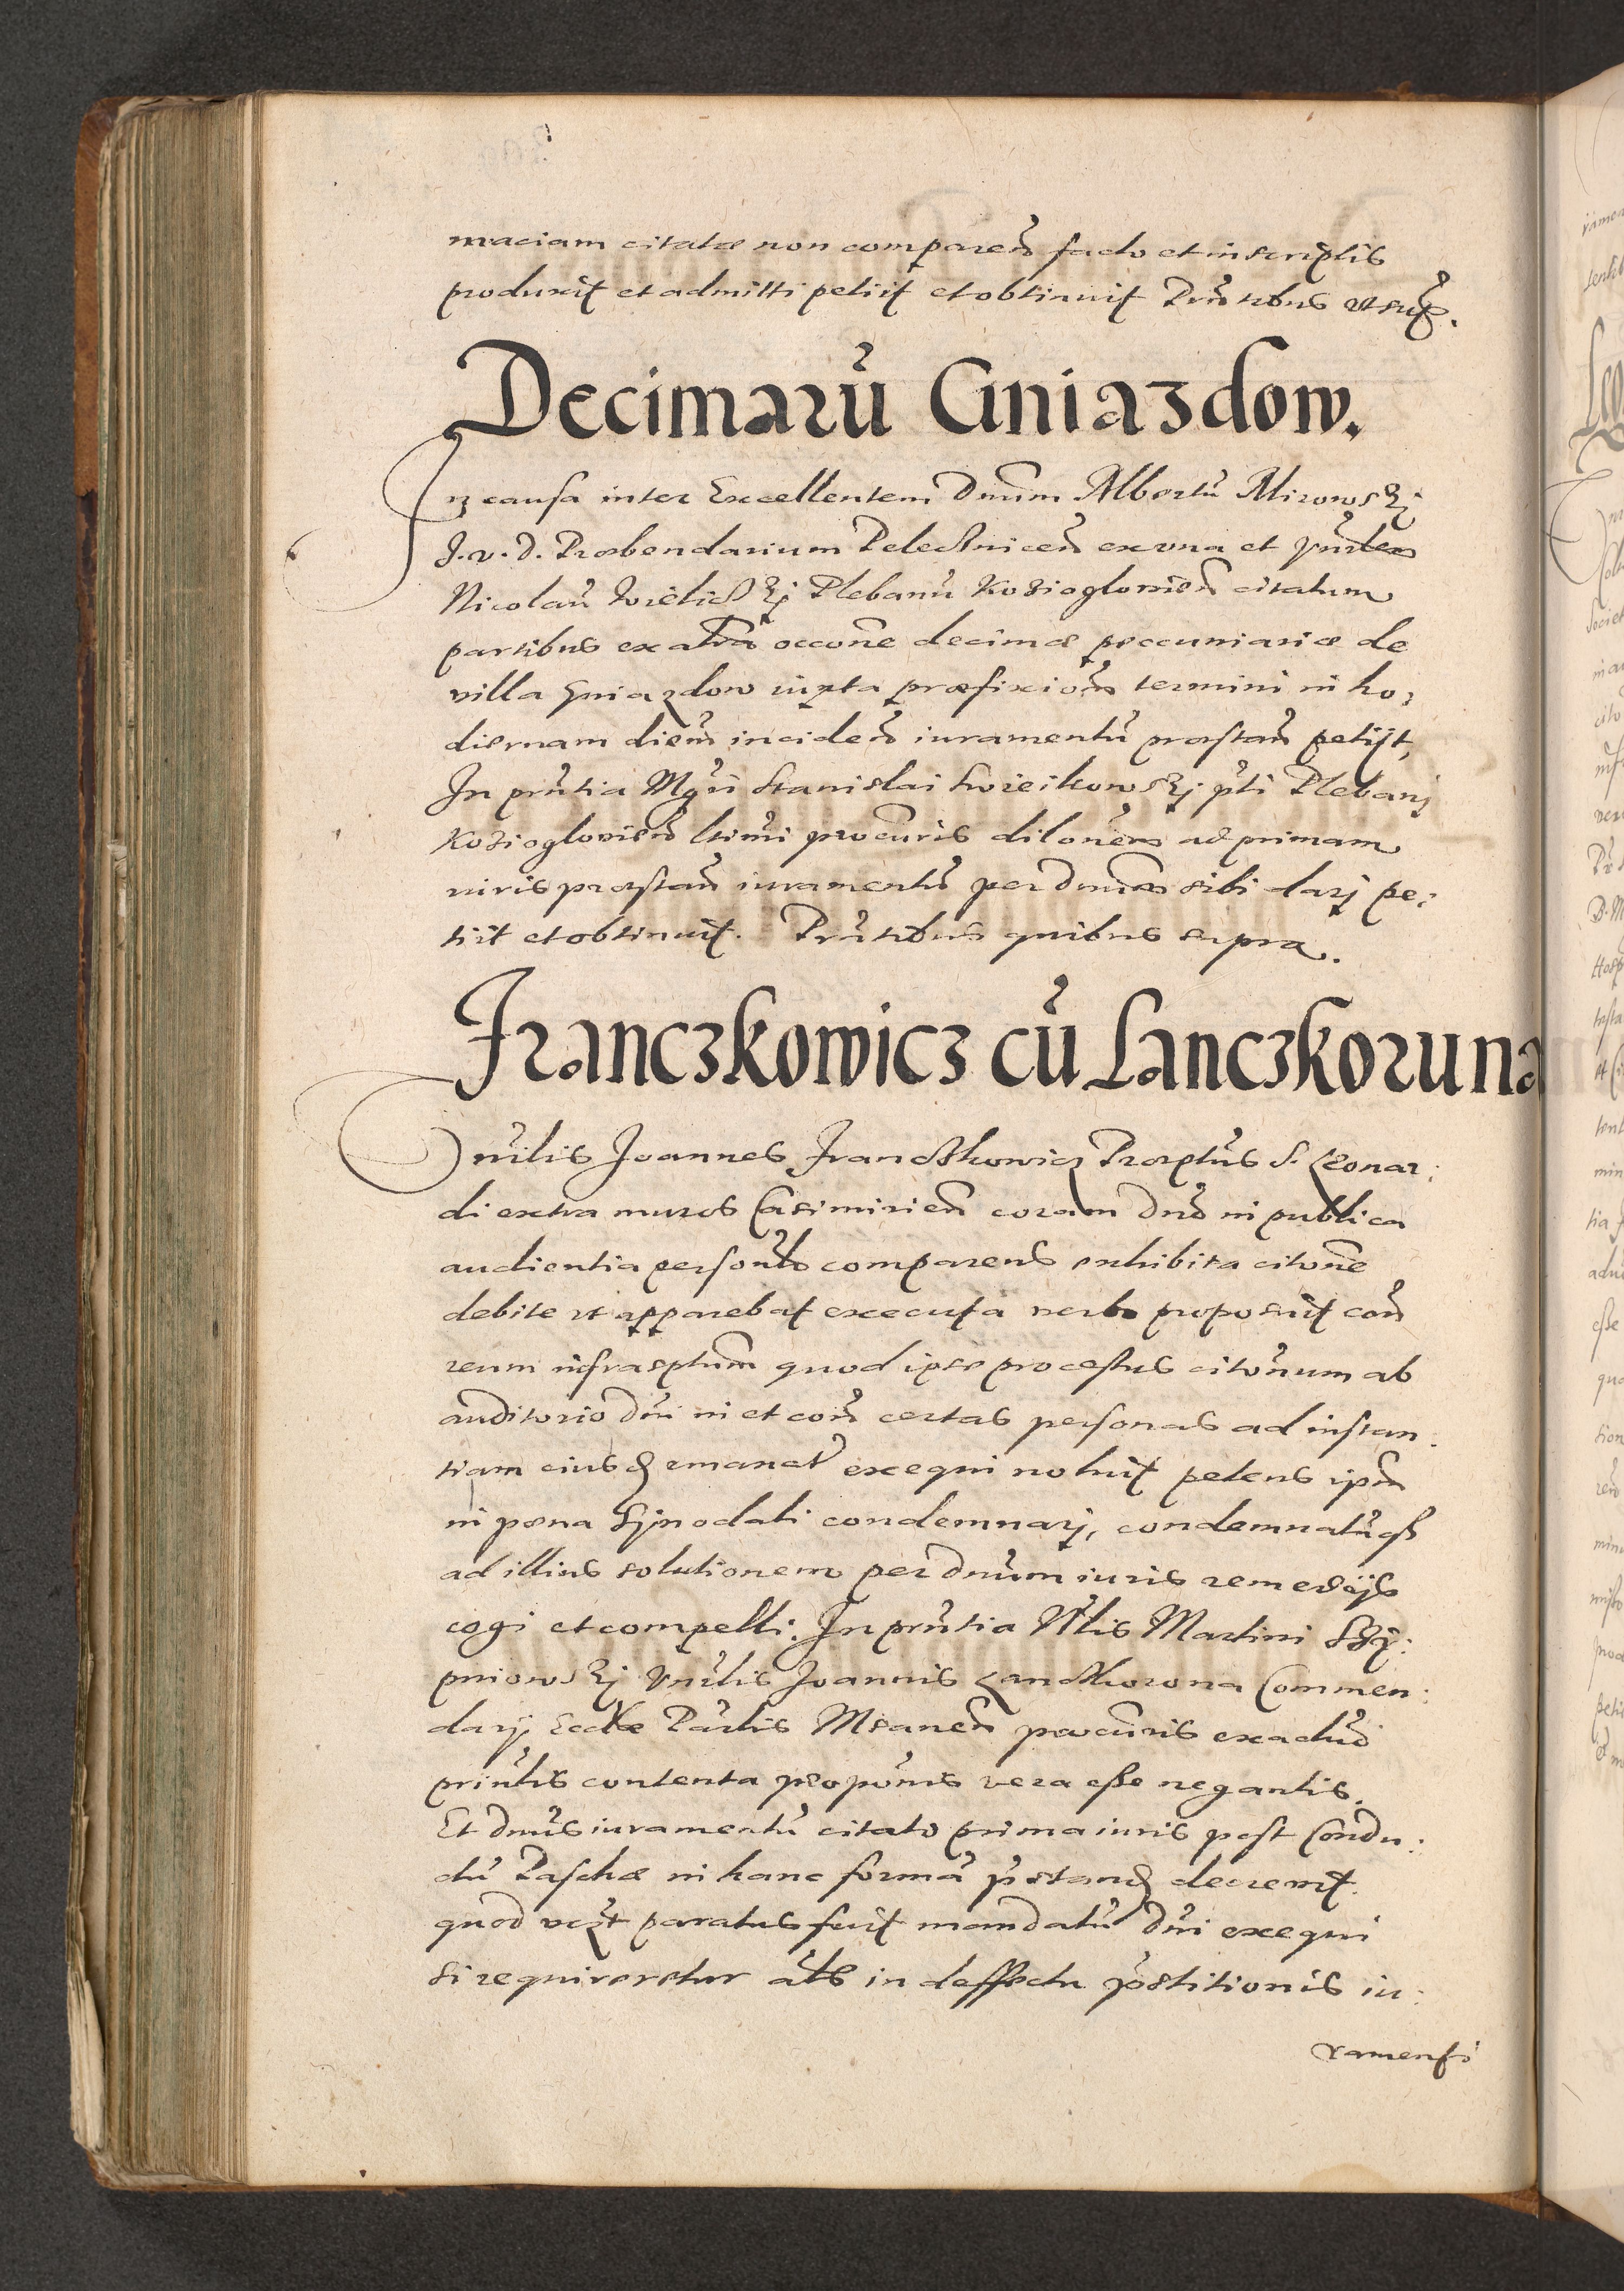 maciam citatæ non comparen̄ facto et in scriptis
produxit et admitti petiit et obtinuit Pn̄tibus vt sup̄.
Decimarū Gniazdow.
In causa inter Excellentem Dnūm Albertū Mirowskj
J. v. D. Præbendarium Pelcznicen̄ ex vna et
Nicolaū Plebanū Kozioglovien̄ citatum
partibus ex altrā occōne decimæ peccuniariæ de
villa Gniazdow iuxta præfixiōm termini in ho:
diernam diem inciden̄ iuramentū præstan̄ petijt,
In pn̄tia Mgrī Stanislai pti Plebanj
Koziogloviен̄ ltimi procuris dilōnem ad primam
iuris præstan̄ iuramentū per Dnūm sibi darj pe:
tiit et obtinuit. Pn̄tibus quibus supra.
Franczkowicz cū Lanczkoruna
Vn̄rlis Joannes Franczkowicz Præptūs S. Leonar:
di extra muros Casimirien̄ coram Dnō in publica
audientia personlr̄ comparens exhibita citōne
debite vt apparebat executa verbo proposuit con̄
reum infrasptum quod ipse processus citōnum ab
auditorio Dnī in et con̄ certas personas ad instan:
tiam eiusd emanat̄ exequi noluit petens ipm̄
in pœna Sÿnodali condemnarj, condemnatūqꝫ
ad illius solutionem per Dnūm iuris remedijs
cogi et compelli. In pn̄tia Nlis Martini Skrzÿ:
pniowskj Vn̄rlis Joannis Lanczkorona Commen:
darij Ecclæ Parlis Msanen̄ procuris ex actū
priūlis contenta propōnis vera esse negantis.
Et Dnūs iuramentū citato prima iuris post Condu:
ctū Paschæ in hanc formā pstand decrevit.
quod paratus fuit mandatū Dnī exequi
si requireretur als in deffectu pstitionis iu:
ramenti